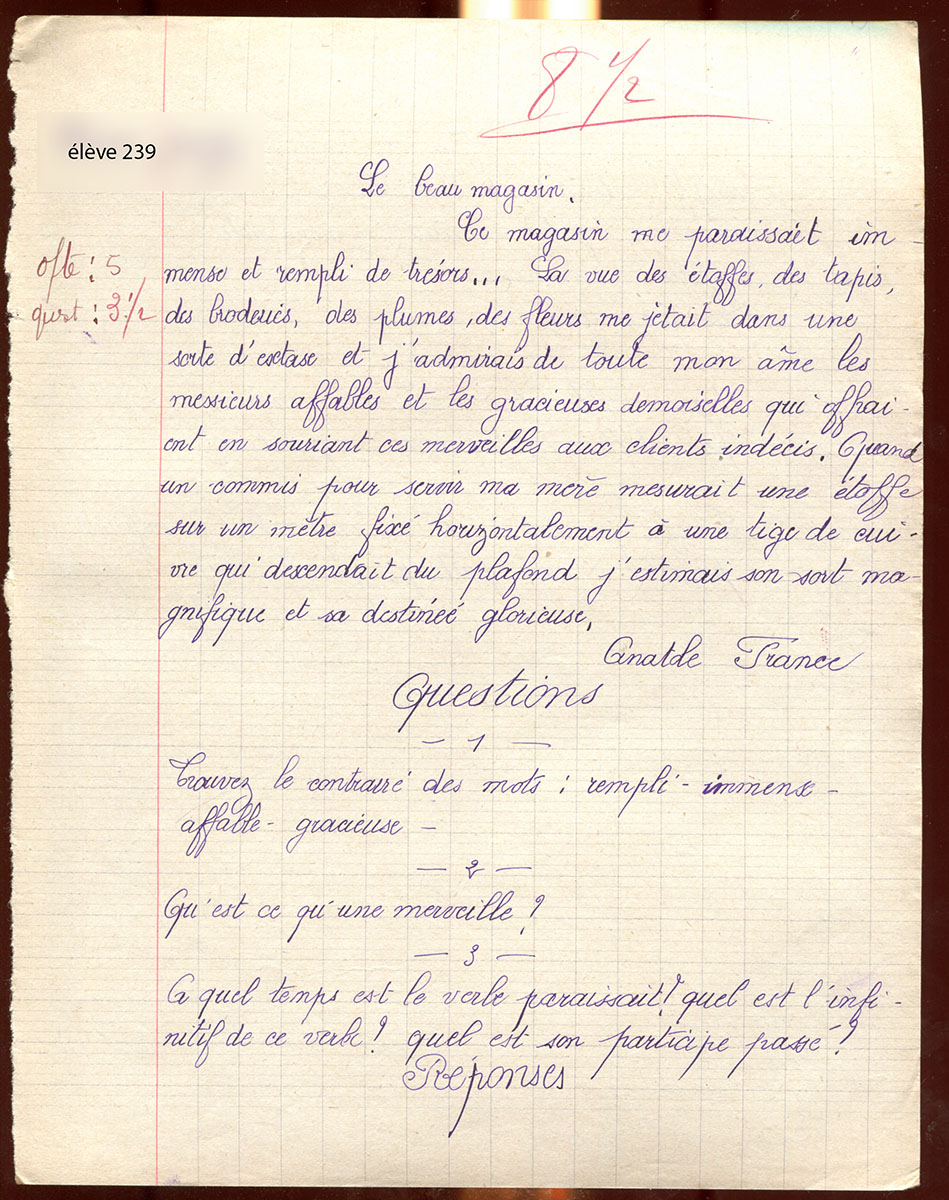 8 1/2
élève 239
Le beau magasin.
Ce magasin me paraissait im-
mense et rempli de trésors... La vue des étoffes, des tapis,
des broderies, des plumes, des fleurs me jetait dans une
sorte d'extase et j'admirais de toute mon âme les
messieurs affables et les gracieuses demoiselles qui offrai-
ent en souriant ces merveilles aux clients indécis. Quand
un commis pour servir ma mère mesurait une étoffe
sur un mètre fixé horizontalement à une tige de cui-
vre qui descendait du plafond j'estimais son sort ma-
gnifique et sa destinée glorieuse.
Anatole France
ofte : 5
quest : 3 1/2
Questions
— 1 —
Trouvez le contraire des mots : rempli - immense -
affable - gracieuse -
— 2 —
Qu'est ce qu'une merveille ?
— 3 —
A quel temps est le verbe paraissait ? quel est l'infi-
nitif de ce verbe ? quel est son participe passé ?
Réponses